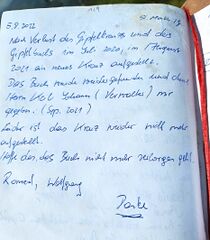 5.9.2022
Nach Verlust des Gipfelkreuzes und des
Gipfelbuchs im Juli 2020, im August
2021 ein neues Kreuz aufgestellt.
Das Buch wurde wiedergefunden und dem
Herrn Johann (Verwalter) mir
gegeben. (Sep. 2021)
Leider ist das Kreuz wieder nicht mehr
aufgestellt.
Hoffe das, das Buch nicht mehr verloren geht.
Roman, Wolfgang
Danke